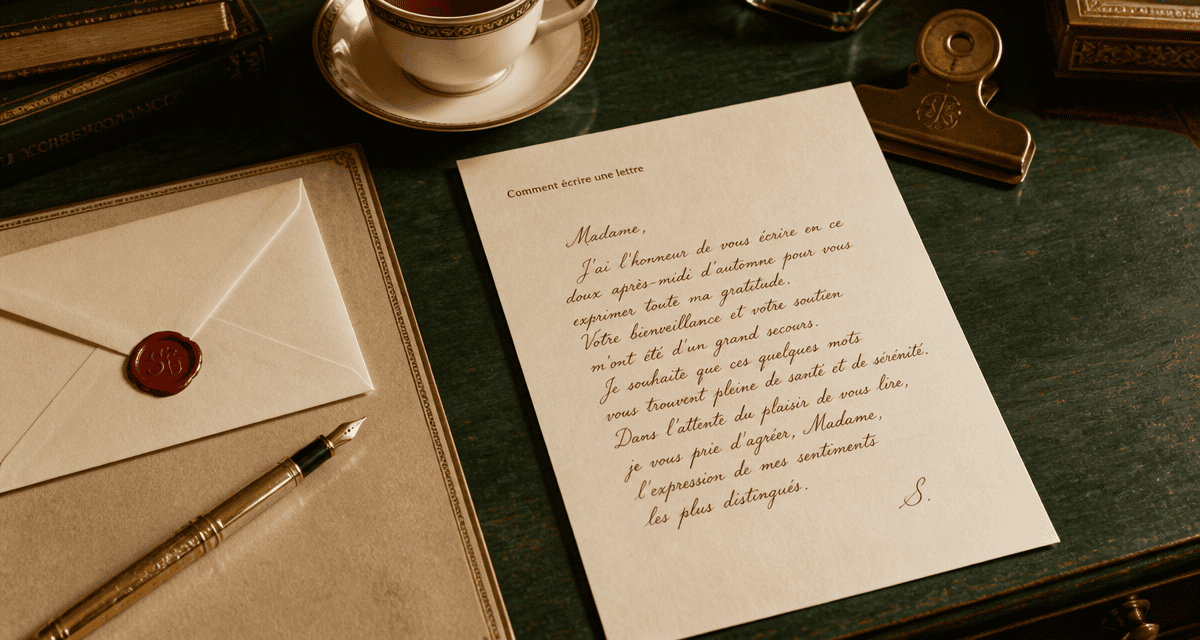 Comment écrire une lettre
Madame,
J'ai l'honneur de vous écrire en ce
doux après-midi d'automne pour vous
exprimer toute ma gratitude.
Votre bienveillance et votre soutien
m'ont été d'un grand secours.
Je souhaite que ces quelques mots
vous trouvent pleine de santé et de sérénité.
Dans l'attente du plaisir de vous lire,
je vous prie d'agréer, Madame,
l'expression de mes sentiments
les plus distingués.
S.